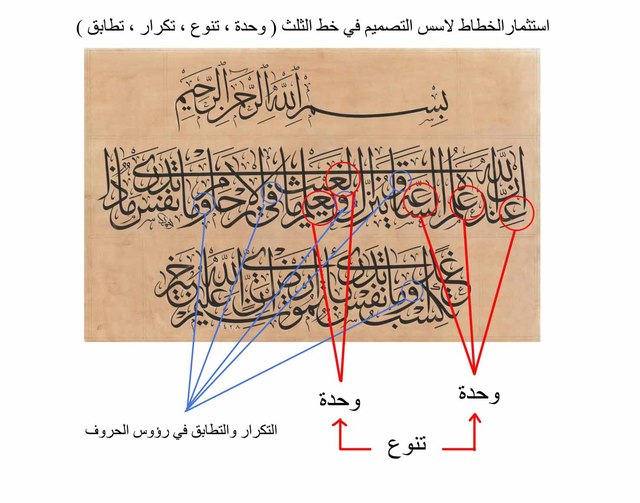 استثمار الخطاط لاسس التصميم في خط الثلث ( وحدة ، تنوع ، تكرار ، تطابق )
بسم الله الرحمن الرحيم
ان الله عنده علم الساعة وينزل الغيث ويعلم ما في الارحام وما تدري نفس ماذا
تكسب غدا وما تدري نفس باي ارض تموت ان الله عليم خبير
وحدة
وحدة
التكرار والتطابق في رؤوس الحروف
تنوع